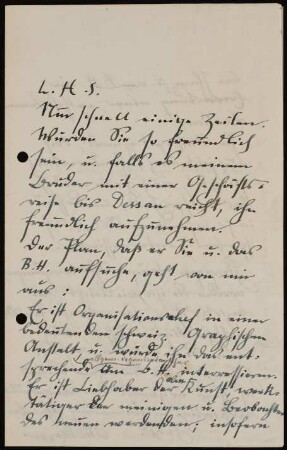 L. H. S.
Nur schnell einige Zeilen.
Würden Sie so freundlich
sein, u. falls es meinem
Bruder mit einer Geschäfts-
reise bis Dessau reicht, ihn
freundlich aufzunehmen.
Der Plan, daß er Sie u. das
B.H. aufsuche, geht von mir
aus:
Er ist Organisationschef in einer
bedeutenden schweiz. Graphischen
Anstalt u. würde ihn das ent-
sprechende am B.H. interressieren.
Er ist Liebhaber der Kunst werk-
tätiger der meinigen u. Beobachter
des neuen werdenden; insofern